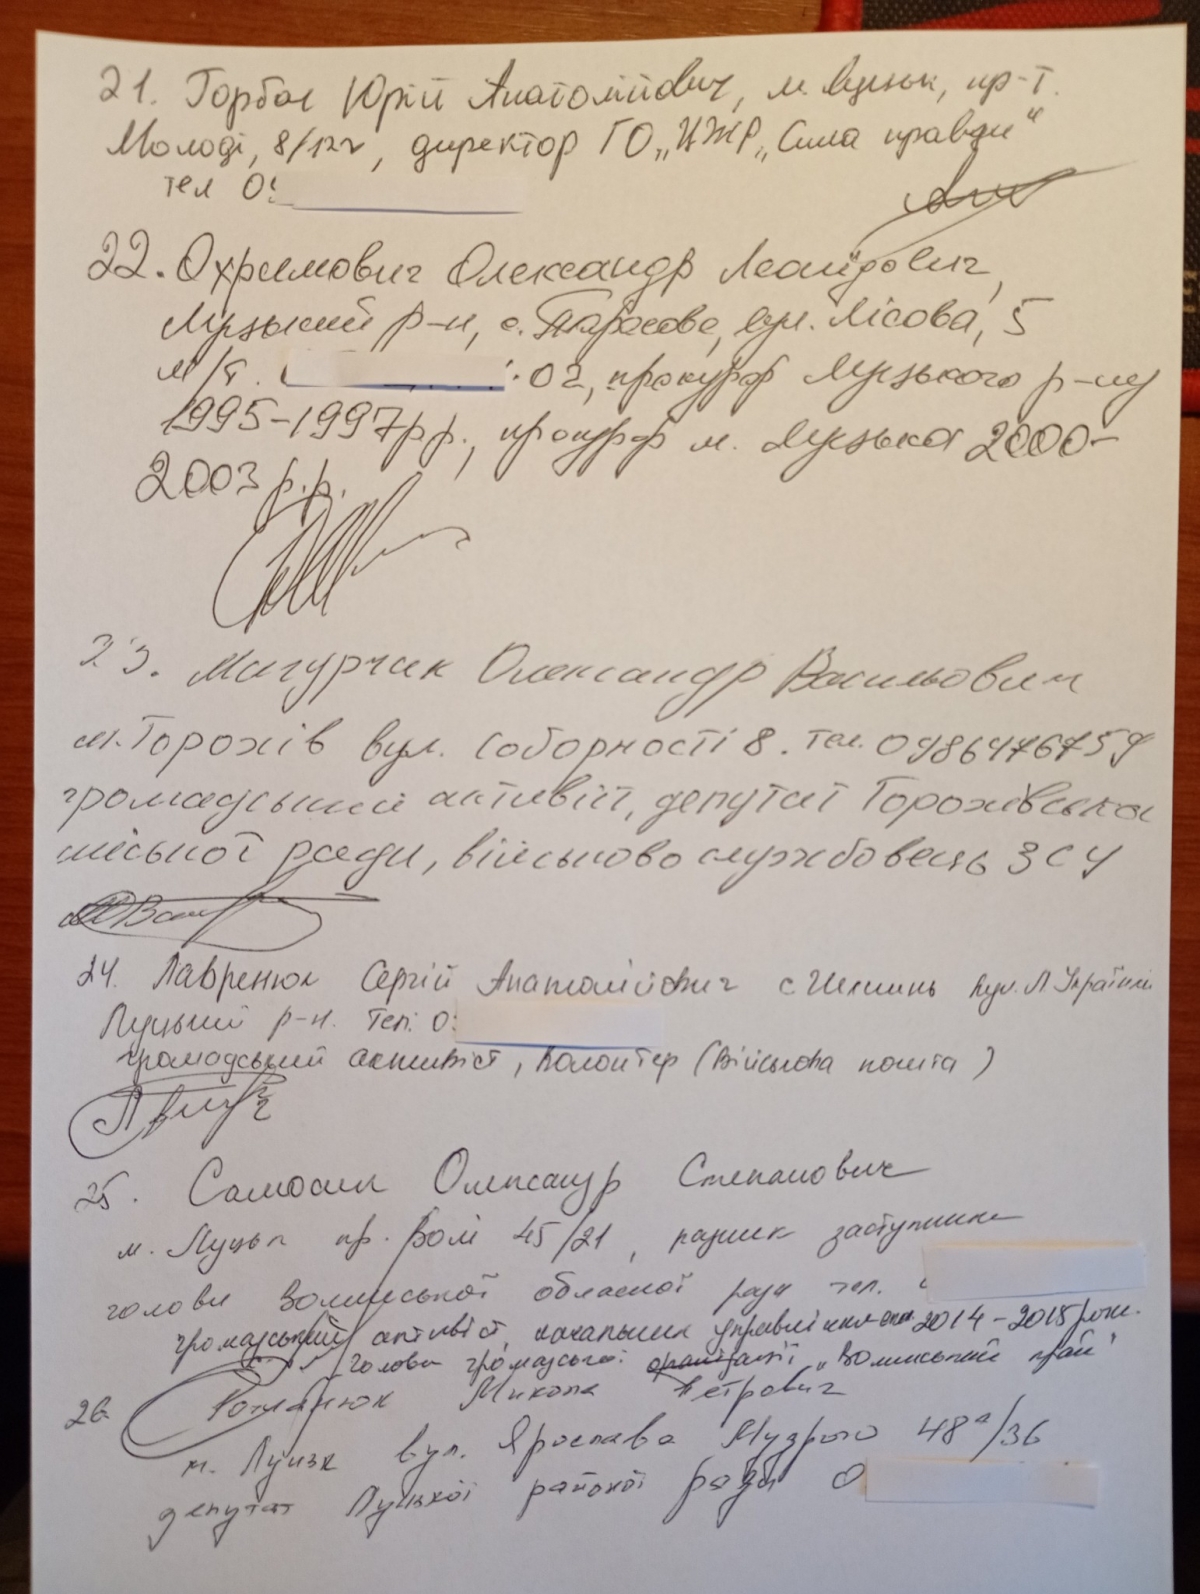 21. Горбач Юрій Анатолійович, м. Луцьк, пр-т.
Молоді, 8/122, директор ГО „ЦЖР „Сила правди"
тел 0
22. Охримович Олександр Леонідович,
Луцький р-н, с. Тарасове, вул. Лісова, 5
м/т. 02, прокурор Луцького р-ну
1995-1997 р.р., прокурор м. Луцька 2000-
2003 р.р.
23. Мачурчак Олександр Васильович
м. Горохів вул. Соборності 8. тел. 0986476759
громадський активіст, депутат Горохівської
міської ради, військовослужбовець ЗСУ
24. Лавренюк Сергій Анатолійович с вул. Л Українки
Луцький р-н. Тел: 0
громадський активіст, волонтер (Військова пошта)
25. Олександр Степанович
м. Луцьк пр. Волі 45/21, радник заступника
голови Волинської обласної ради тел.
громадський активіст, начальник управління 2014-2015 роки.
голова громадської організації „Волинський край"
26. Романюк Микола Петрович
м. Луцьк вул. Ярослава Мудрого 48а/36
депутат Луцької районої ради 0